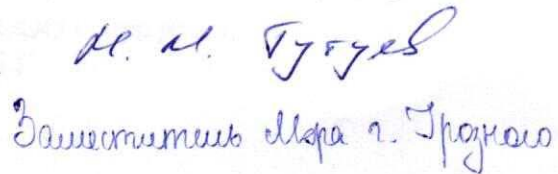 М. М. Гугуев
Заместитель Мэра г. Грозного